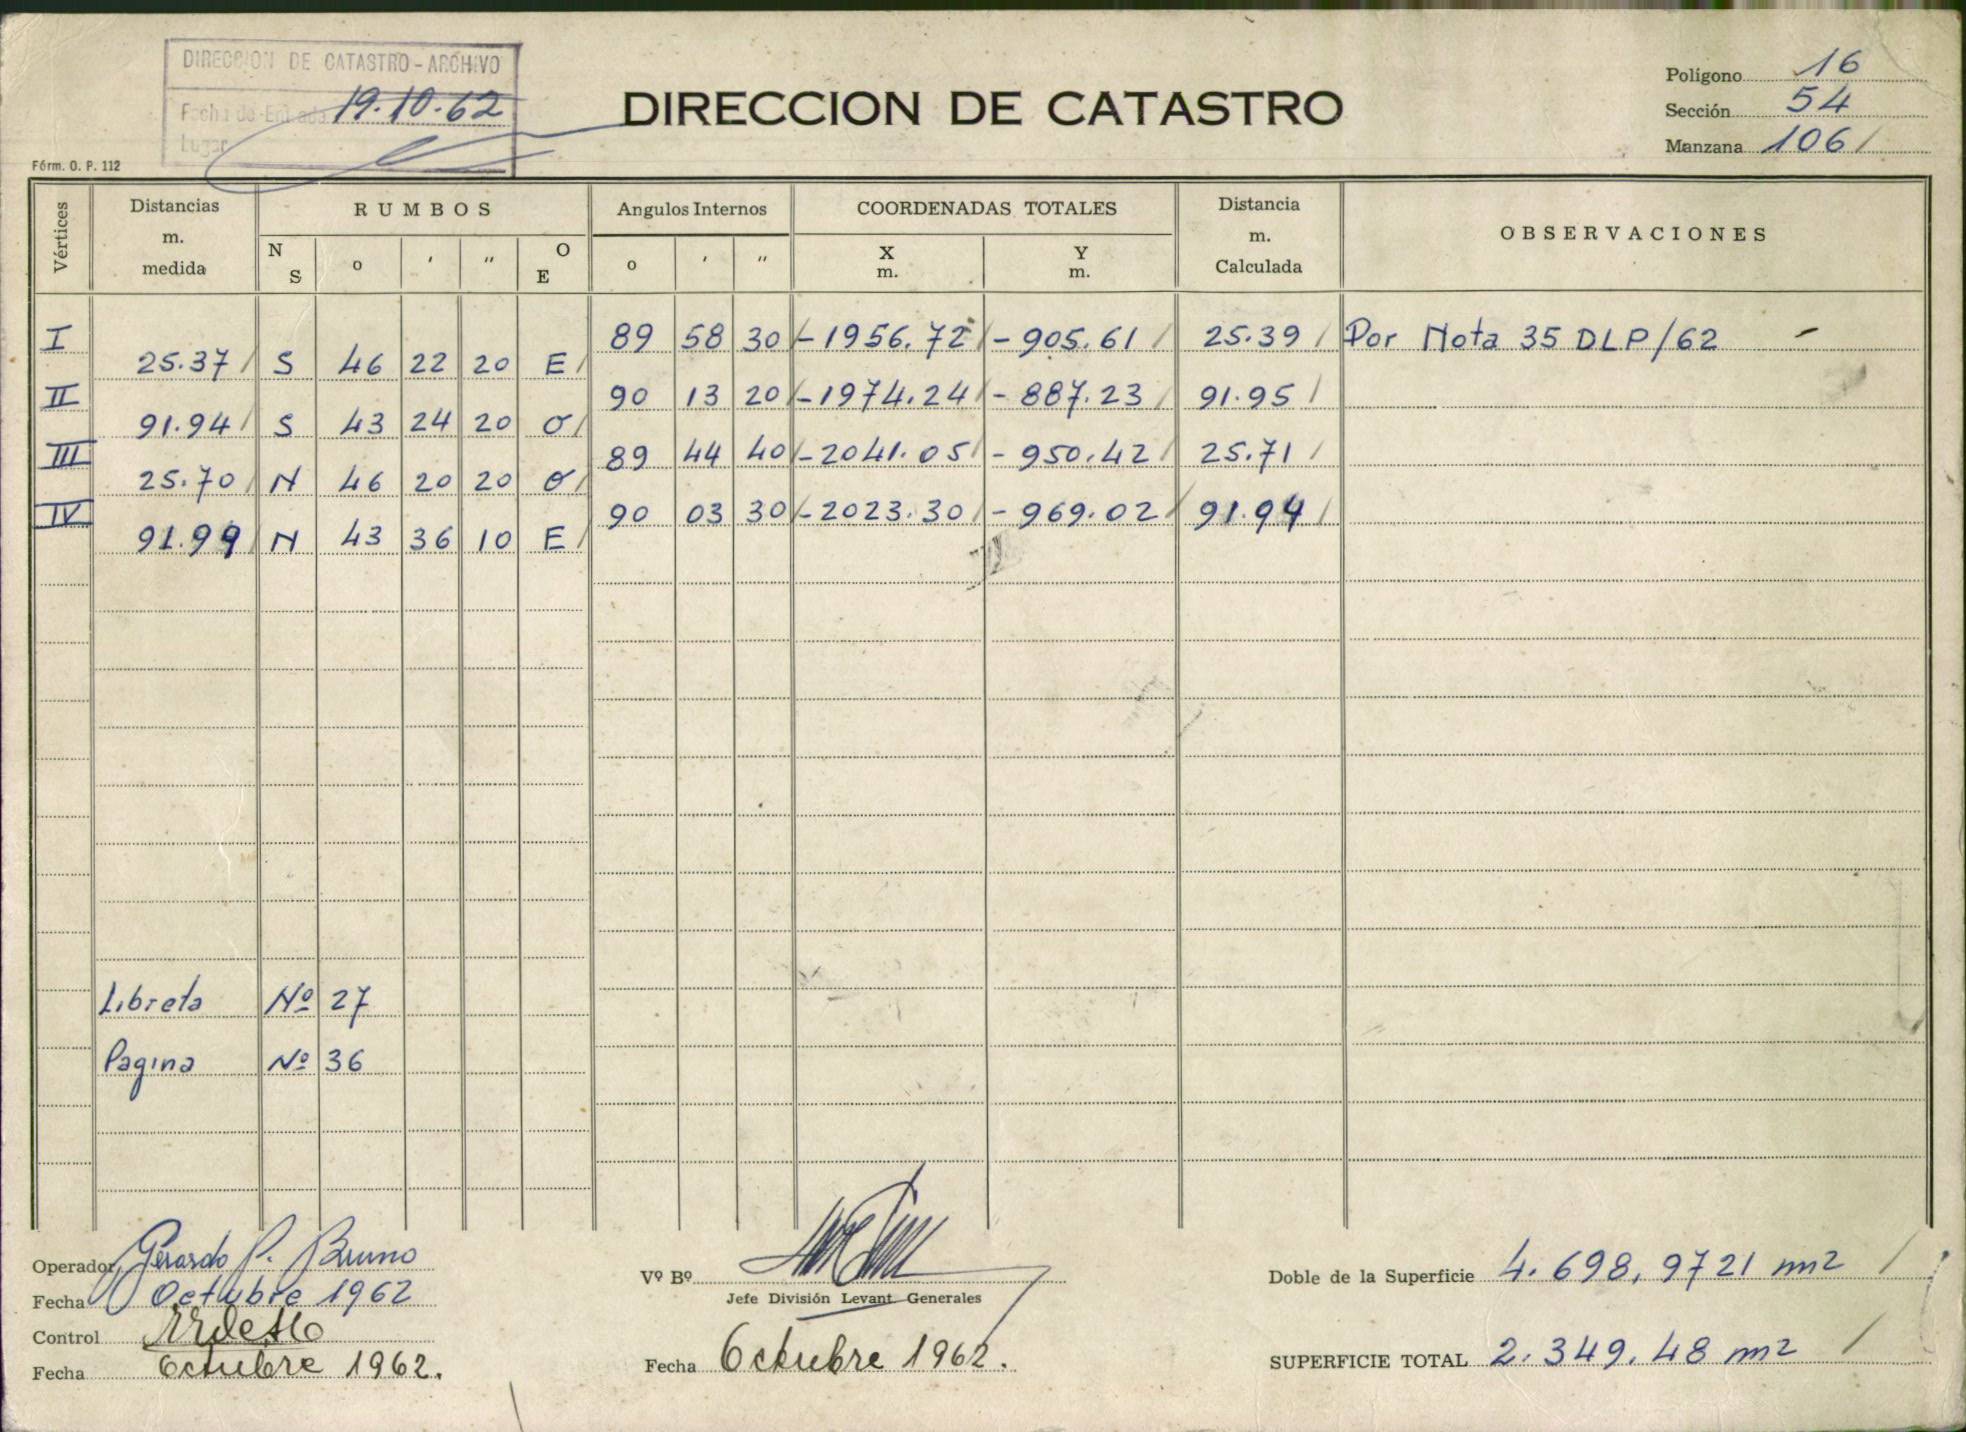 DIRECCION DE CATASTRO - ARCHIVO
Fecha de Entrada 19.10.62
Lugar
DIRECCION DE CATASTRO
Polígono 16
Sección 54
Manzana 106 /
Fórm. O. P. 112
Vértices Distancias m. medida RUMBOS N S o ' " O E Angulos Internos o ' " COORDENADAS TOTALES X m. Y m. Distancia m. Calculada OBSERVACIONES
I 89 58 30 -1956.72 -905.61 25.39 Por Nota 35 DLP/62 -
25.37 S 46 22 20 E
II 90 13 20 -1974.24 -887.23 91.95
91.94 S 43 24 20 O
III 89 44 40 -2041.05 -950.42 25.71
25.70 N 46 20 20 O
IV 90 03 30 -2023.30 -969.02 91.94
91.99 N 43 36 10 E
Libreta Nº 27
Pagina Nº 36
Operador Gerardo P. Bruno
Fecha Octubre 1962
Control
Fecha Octubre 1962.
Vº Bº
Jefe División Levant Generales
Fecha Octubre 1962.
Doble de la Superficie 4.698,9721 m2 /
SUPERFICIE TOTAL 2.349.48 m2 /